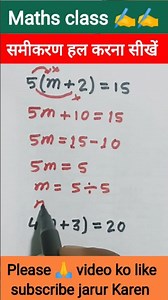 Maths class ✍️✍️
समीकरण हल करना सीखें
5(m+2)=15
5m+10=15
5m=15-10
5m=5
m=5÷5
+3)=20
Please 🙏 video ko like
subscribe jarur Karen